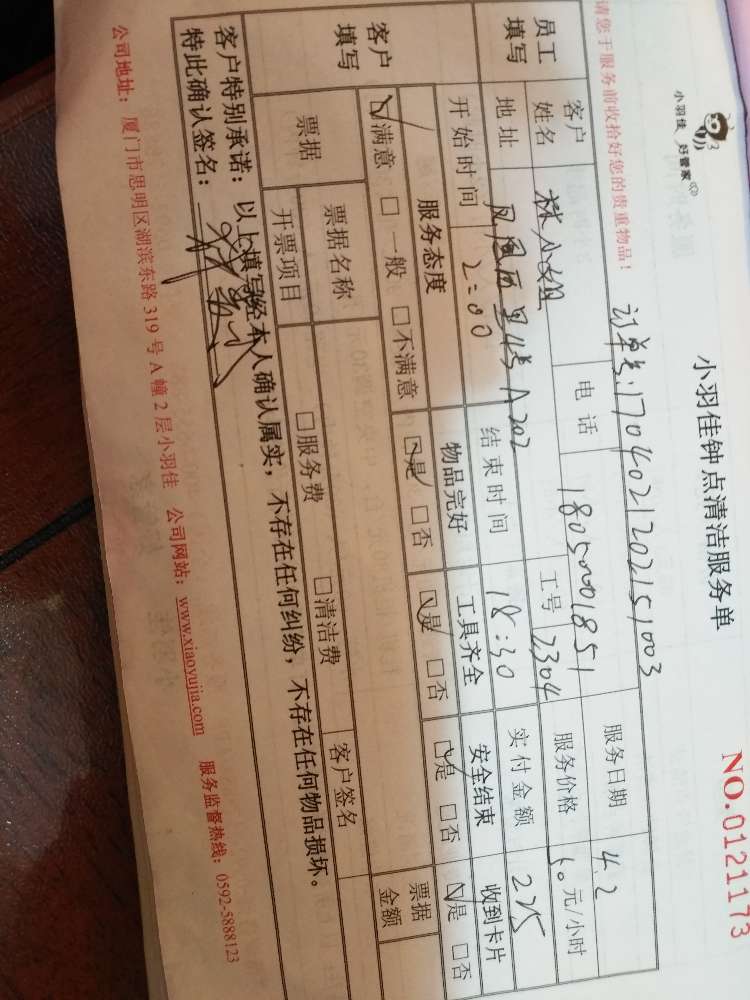 小羽佳 好管家
小羽佳钟点清洁服务单
NO.0121173
请您于服务前收拾好您的贵重物品!
订单号:1704021202151003
员工填写
客户姓名 林小姐 电话 18050001851 服务日期 4.2
地址 凤凰百里1号A202 工号 2304 服务价格 元/小时
开始时间 2:00 结束时间 18:30 实付金额 225
客户填写
服务态度 物品完好 工具齐全 安全结束 收到卡片
☑满意 □一般 □不满意 ☑是 □否 ☑是 □否 ☑是 □否 ☑是 □否
票据 票据名称 票据金额
开票项目 □服务费 □清洁费 客户签名
客户特别承诺:以上填写经本人确认属实,不存在任何纠纷,不存在任何物品损坏。
特此确认签名:
公司地址:厦门市思明区湖滨东路319号A幢2层小羽佳 公司网站:www.xiaoyujia.com 服务监督热线:0592-5888123